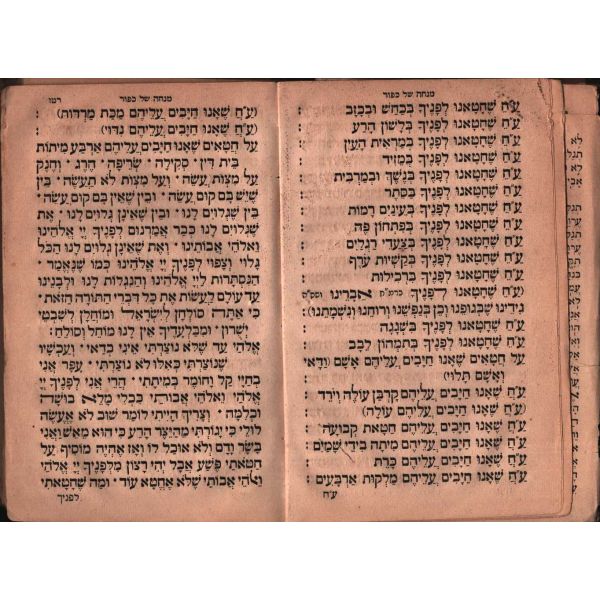 מנחה של כפור
ע״ח שֶׁחָטָאנוּ לְפָנֶיךָ בְּכַחַשׁ וּבְכָזָב :
ע״ח שֶׁחָטָאנוּ לְפָנֶיךָ בְּלָשׁוֹן הָרָע :
ע״ח שֶׁחָטָאנוּ לְפָנֶיךָ בְּמַרְאִית הָעַיִן :
ע״ח שֶׁחָטָאנוּ לְפָנֶיךָ בְּמֵזִיד :
ע״ח שֶׁחָטָאנוּ לְפָנֶיךָ בְּנֶשֶׁךְ וּבְמַרְבִּית :
ע״ח שֶׁחָטָאנוּ לְפָנֶיךָ בְּסֵתֶר :
ע״ח שֶׁחָטָאנוּ לְפָנֶיךָ בְּעֵינַיִם רָמוֹת :
ע״ח שֶׁחָטָאנוּ לְפָנֶיךָ בְּפִתְחוֹן פֶּה :
ע״ח שֶׁחָטָאנוּ לְפָנֶיךָ בְּצַעֲדֵי רַגְלַיִם :
ע״ח שֶׁחָטָאנוּ לְפָנֶיךָ בְּקַשְׁיוּת עֹרֶף :
ע״ח שֶׁחָטָאנוּ לְפָנֶיךָ בִּרְכִילוּת :
(ע״ח שֶׁחָטָאנוּ לְפָנֶיךָ אֵבָרֵינוּ
גִּידֵינוּ שֶׁבְּגוּפֵנוּ וְכֵן בְּנַפְשֵׁנוּ וְרוּחֵנוּ וְנִשְׁמָתֵנוּ)
ע״ח שֶׁחָטָאנוּ לְפָנֶיךָ בִּשְׁגָגָה :
ע״ח שֶׁחָטָאנוּ לְפָנֶיךָ בְּתִמְהוֹן לֵבָב :
עַל חֲטָאִים שֶׁאָנוּ חַיָּבִים עֲלֵיהֶם אָשָׁם (וַדַּאי
וְאָשָׁם תָּלוּי) :
ע״ח שֶׁאָנוּ חַיָּבִים עֲלֵיהֶם קָרְבַּן עוֹלֶה וְיוֹרֵד :
(ע״ח שֶׁאָנוּ חַיָּבִים עֲלֵיהֶם עוֹלָה) :
ע״ח שֶׁאָנוּ חַיָּבִים עֲלֵיהֶם חַטָּאת קְבוּעָה :
ע״ח שֶׁאָנוּ חַיָּבִים עֲלֵיהֶם מִיתָה בִּידֵי שָׁמַיִם :
ע״ח שֶׁאָנוּ חַיָּבִים עֲלֵיהֶם כָּרֵת :
ע״ח שֶׁאָנוּ חַיָּבִים עֲלֵיהֶם מַלְקוּת אַרְבָּעִים :
ע״ח
מנחה של כפור רמו
(ע״ח שֶׁאָנוּ חַיָּבִים עֲלֵיהֶם מַכַּת מַרְדּוּת) :
(ע״ח שֶׁאָנוּ חַיָּבִים עֲלֵיהֶם נִדּוּי) :
עַל חֲטָאִים שֶׁאָנוּ חַיָּבִים עֲלֵיהֶם אַרְבַּע מִיתוֹת
בֵּית דִּין • סְקִילָה • שְׂרֵיפָה • הֶרֶג • וְחֶנֶק
עַל מִצְוֹת עֲשֵׂה • וְעַל מִצְוֹת לֹא תַעֲשֶׂה • בֵּין
שֶׁיֵּשׁ בָּהֶם קוּם עֲשֵׂה • וּבֵין שֶׁאֵין בָּהֶם קוּם עֲשֵׂה •
בֵּין שֶׁגְּלוּיִים לָנוּ • וּבֵין שֶׁאֵינָן גְּלוּיִים לָנוּ • אֶת
שֶׁגְּלוּיִים לָנוּ כְּבָר אֲמַרְנוּם לְפָנֶיךָ יְיָ אֱלֹהֵינוּ
וֵאלֹהֵי אֲבוֹתֵינוּ • וְאֶת שֶׁאֵינָן גְּלוּיִים לָנוּ הַכֹּל
גָּלוּי וְצָפוּי לְפָנֶיךָ יְיָ אֱלֹהֵינוּ כְּמוֹ שֶׁנֶּאֱמַר •
הַנִּסְתָּרוֹת לַיְיָ אֱלֹהֵינוּ וְהַנִּגְלוֹת לָנוּ וּלְבָנֵינוּ
עַד עוֹלָם לַעֲשׂוֹת אֶת כָּל דִּבְרֵי הַתּוֹרָה הַזֹּאת •
כִּי אַתָּה סוֹלְחָן לְיִשְׂרָאֵל וּמוֹחֲלָן לְשִׁבְטֵי
יְשֻׁרוּן • וּמִבַּלְעָדֶיךָ אֵין לָנוּ מוֹחֵל וְסוֹלֵחַ :
אֱלֹהַי עַד שֶׁלֹּא נוֹצַרְתִּי אֵינִי כְדַאי • וְעַכְשָׁיו
שֶׁנּוֹצַרְתִּי כְּאִלּוּ לֹא נוֹצַרְתִּי • עָפָר אֲנִי
בְּחַיַּי קַל וָחוֹמֶר בְּמִיתָתִי • הֲרֵי אֲנִי לְפָנֶיךָ יְיָ
אֱלֹהַי וֵאלֹהֵי אֲבוֹתַי כִּכְלִי מָלֵא בוּשָׁה
וּכְלִמָּה • וְצָרִיךְ הָיִיתִי לוֹמַר שׁוּב לֹא אֶעֱשֶׂה
לוּלֵי כִּי יָגוֹרְתִּי מֵהַיֵּצֶר הָרָע כִּי הוּא מֵאֵשׁ וַאֲנִי
בָּשָׂר וָדָם וְלֹא אוּכַל לוֹ וְאָז אֶהְיֶה מוֹסִיף עַל
חַטֹּאתַי פֶּשַׁע אֲבָל יְהִי רָצוֹן מִלְּפָנֶיךָ יְיָ אֱלֹהַי
וֵאלֹהֵי אֲבוֹתַי שֶׁלֹּא אֶחֱטָא עוֹד • וּמַה שֶּׁחָטָאתִי
לפניך